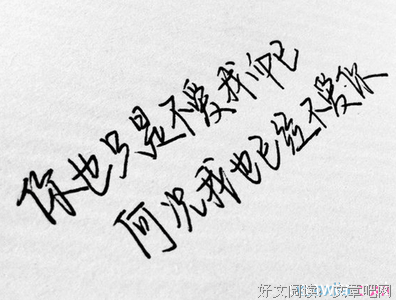 你也只是不爱我而已
何况我也已经不爱你
好文阅读 文章吧网